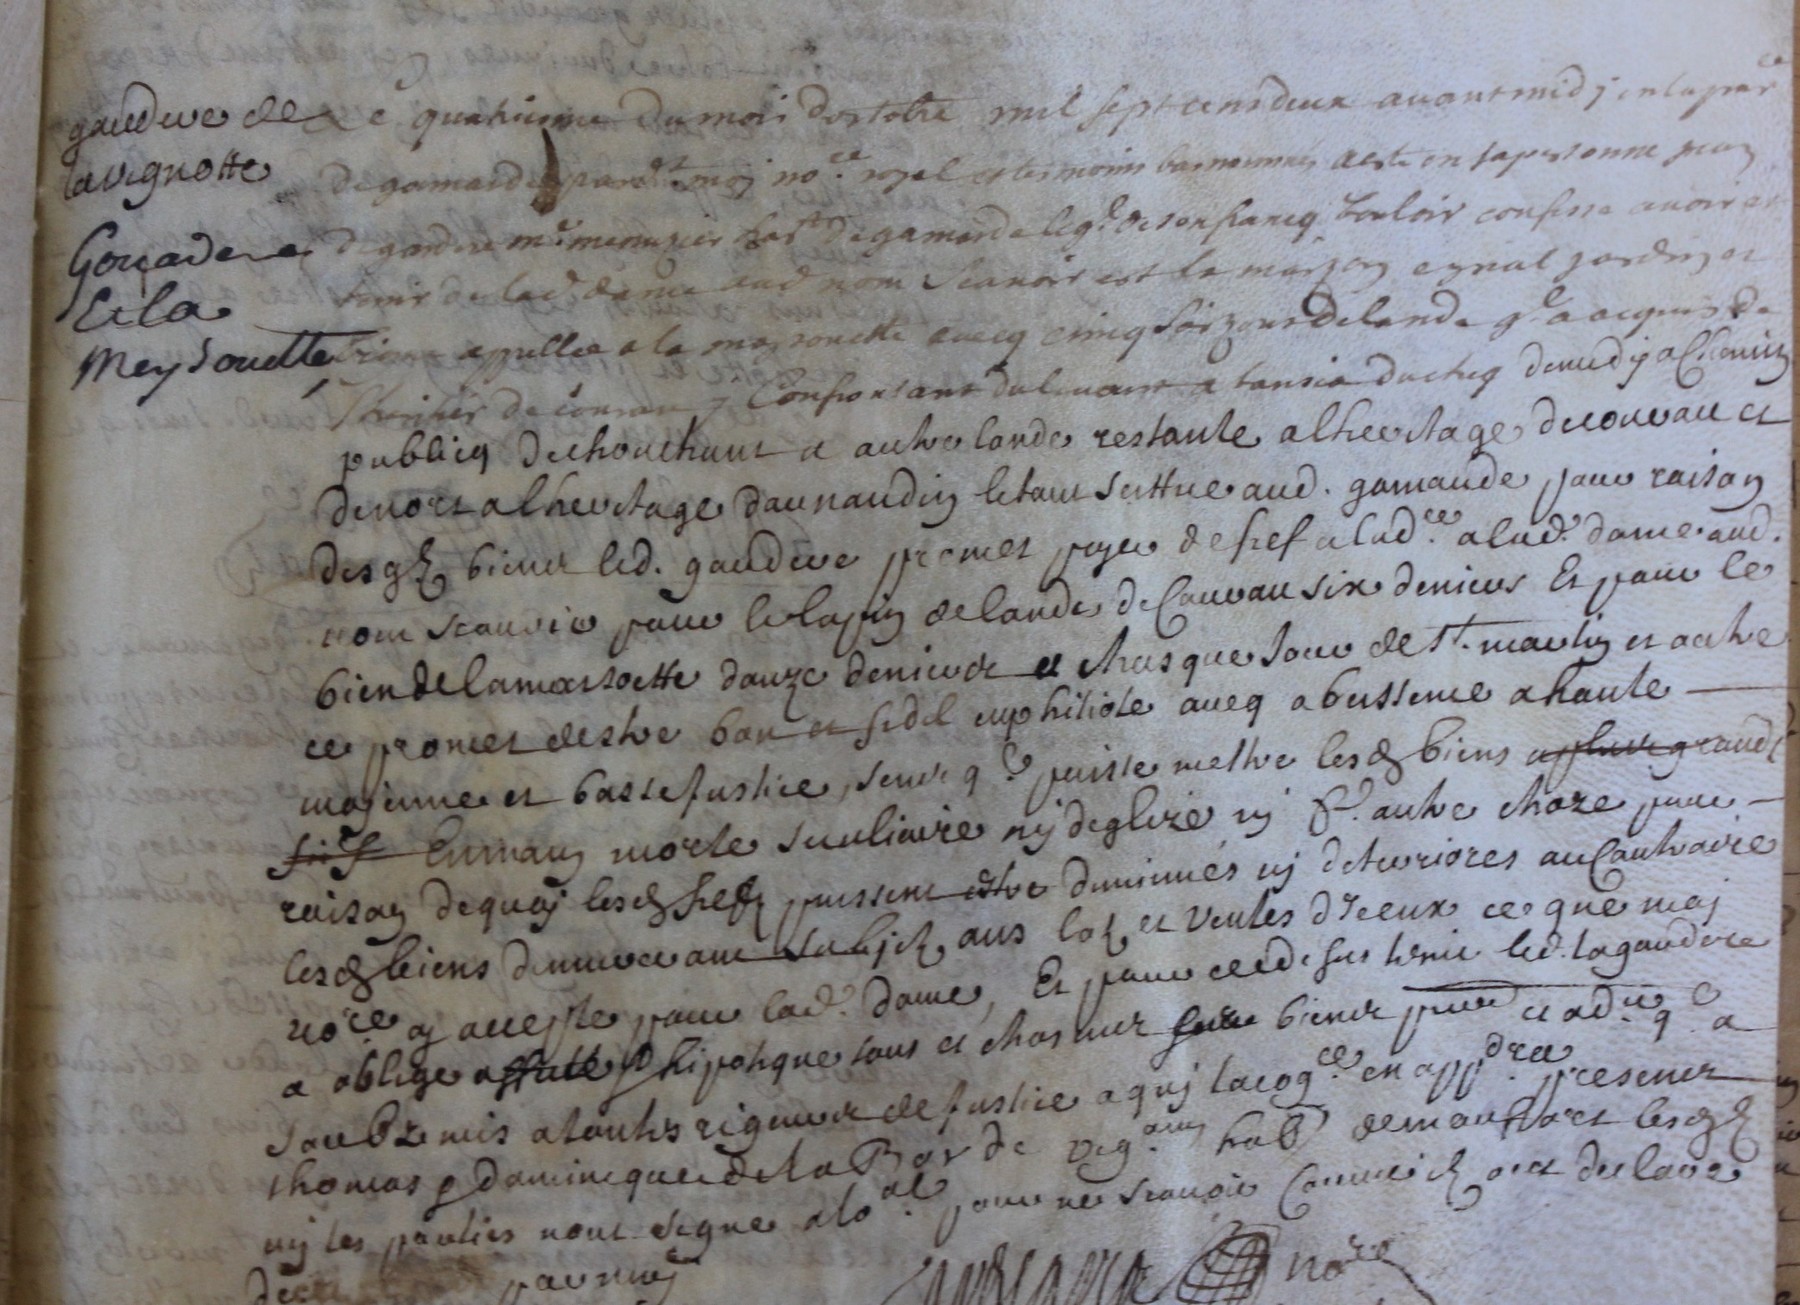 gaudere de
lavignotte
Goucadere
Et la
Meysouette
Le quatriesme du mois doctobre mil sept cens deux avant midy en la parce
de gamarde pardt moy nore royal et tesmoins bas nommes a este en sa personne jean
de gaudere me menuzier hant de gamarde leql de son francq vouloir confesse avoir et
tenir de lad. dame aud nom scavoir est la maizon eyrial jardin et
appellee a la mayzonette avecq cinq de lande ql a acquis de
de couvau Confrontant du levant a du chq du midy a chemin
publicq du chouchant a autre lande restante a lheretage de couvau et
du nort a lheretage darnaudin le tout scittue aud. gamarde pour raison
desqls biens led. gaudere promet payer de fief a lad.ce a lad. dame aud.
nom scauoir pour le lopin de lande de Couvau six deniers Et pour le
bien de lamaisoette douze deniers et chasque jour de St. martin et outre
ce promet destre bon et fidel emphitiote aveq obeissence a haute
moyenne et basse justice, sens ql puisse mettre lesd biens a plus grand
fief En main morte seculiaire ny deglize ny fe. autre choze pour
raison de quoy lesd fiefz puissent estre diminués ny deteriores au Contraire
lesd biens demeureront subjetz aus lotz et ventes diceux ce que moy
nore ay accepte pour lad. dame, Et pour ce dessus tenir led. lagaudere
a oblige affecté hipoteque tous et chascuns biens pnt et adnir ql a
soubzmis a toutes rigueurs de justice a quj la cogce en appdra presens
thomas et dominique de la Bor de vign habt de monfort lesqls
ny les parties nont signe aloal. pour ne scavoir Comme ils ont declare
par moy
nore